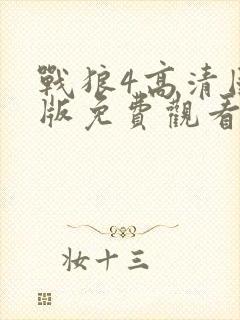 戰狼4高清
版免費觀看
妝十三